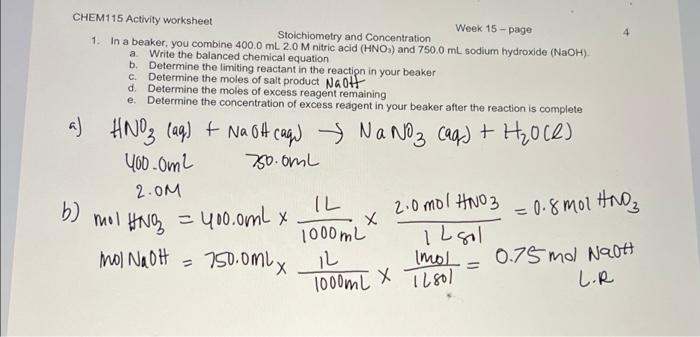 CHEM115 Activity worksheet
Week 15 – page 4
Stoichiometry and Concentration
1. In a beaker, you combine 400.0 mL 2.0 M nitric acid (HNO₃) and 750.0 mL sodium hydroxide (NaOH).
a. Write the balanced chemical equation
b. Determine the limiting reactant in the reaction in your beaker
c. Determine the moles of salt product NaOH
d. Determine the moles of excess reagent remaining
e. Determine the concentration of excess reagent in your beaker after the reaction is complete
a) HNO₃ (aq) + NaOH (aq) → NaNO₃ (aq) + H₂O(l)
400.0ml 750.0mL
2.0M
b) mol HNO₃ = 400.0mL × 1L / 1000mL × 2.0 mol HNO3 / 1 L sol = 0.8 mol HNO₃
mol NaOH = 750.0mL × 1L / 1000mL × 1mol / 1L sol = 0.75 mol NaOH
L.R